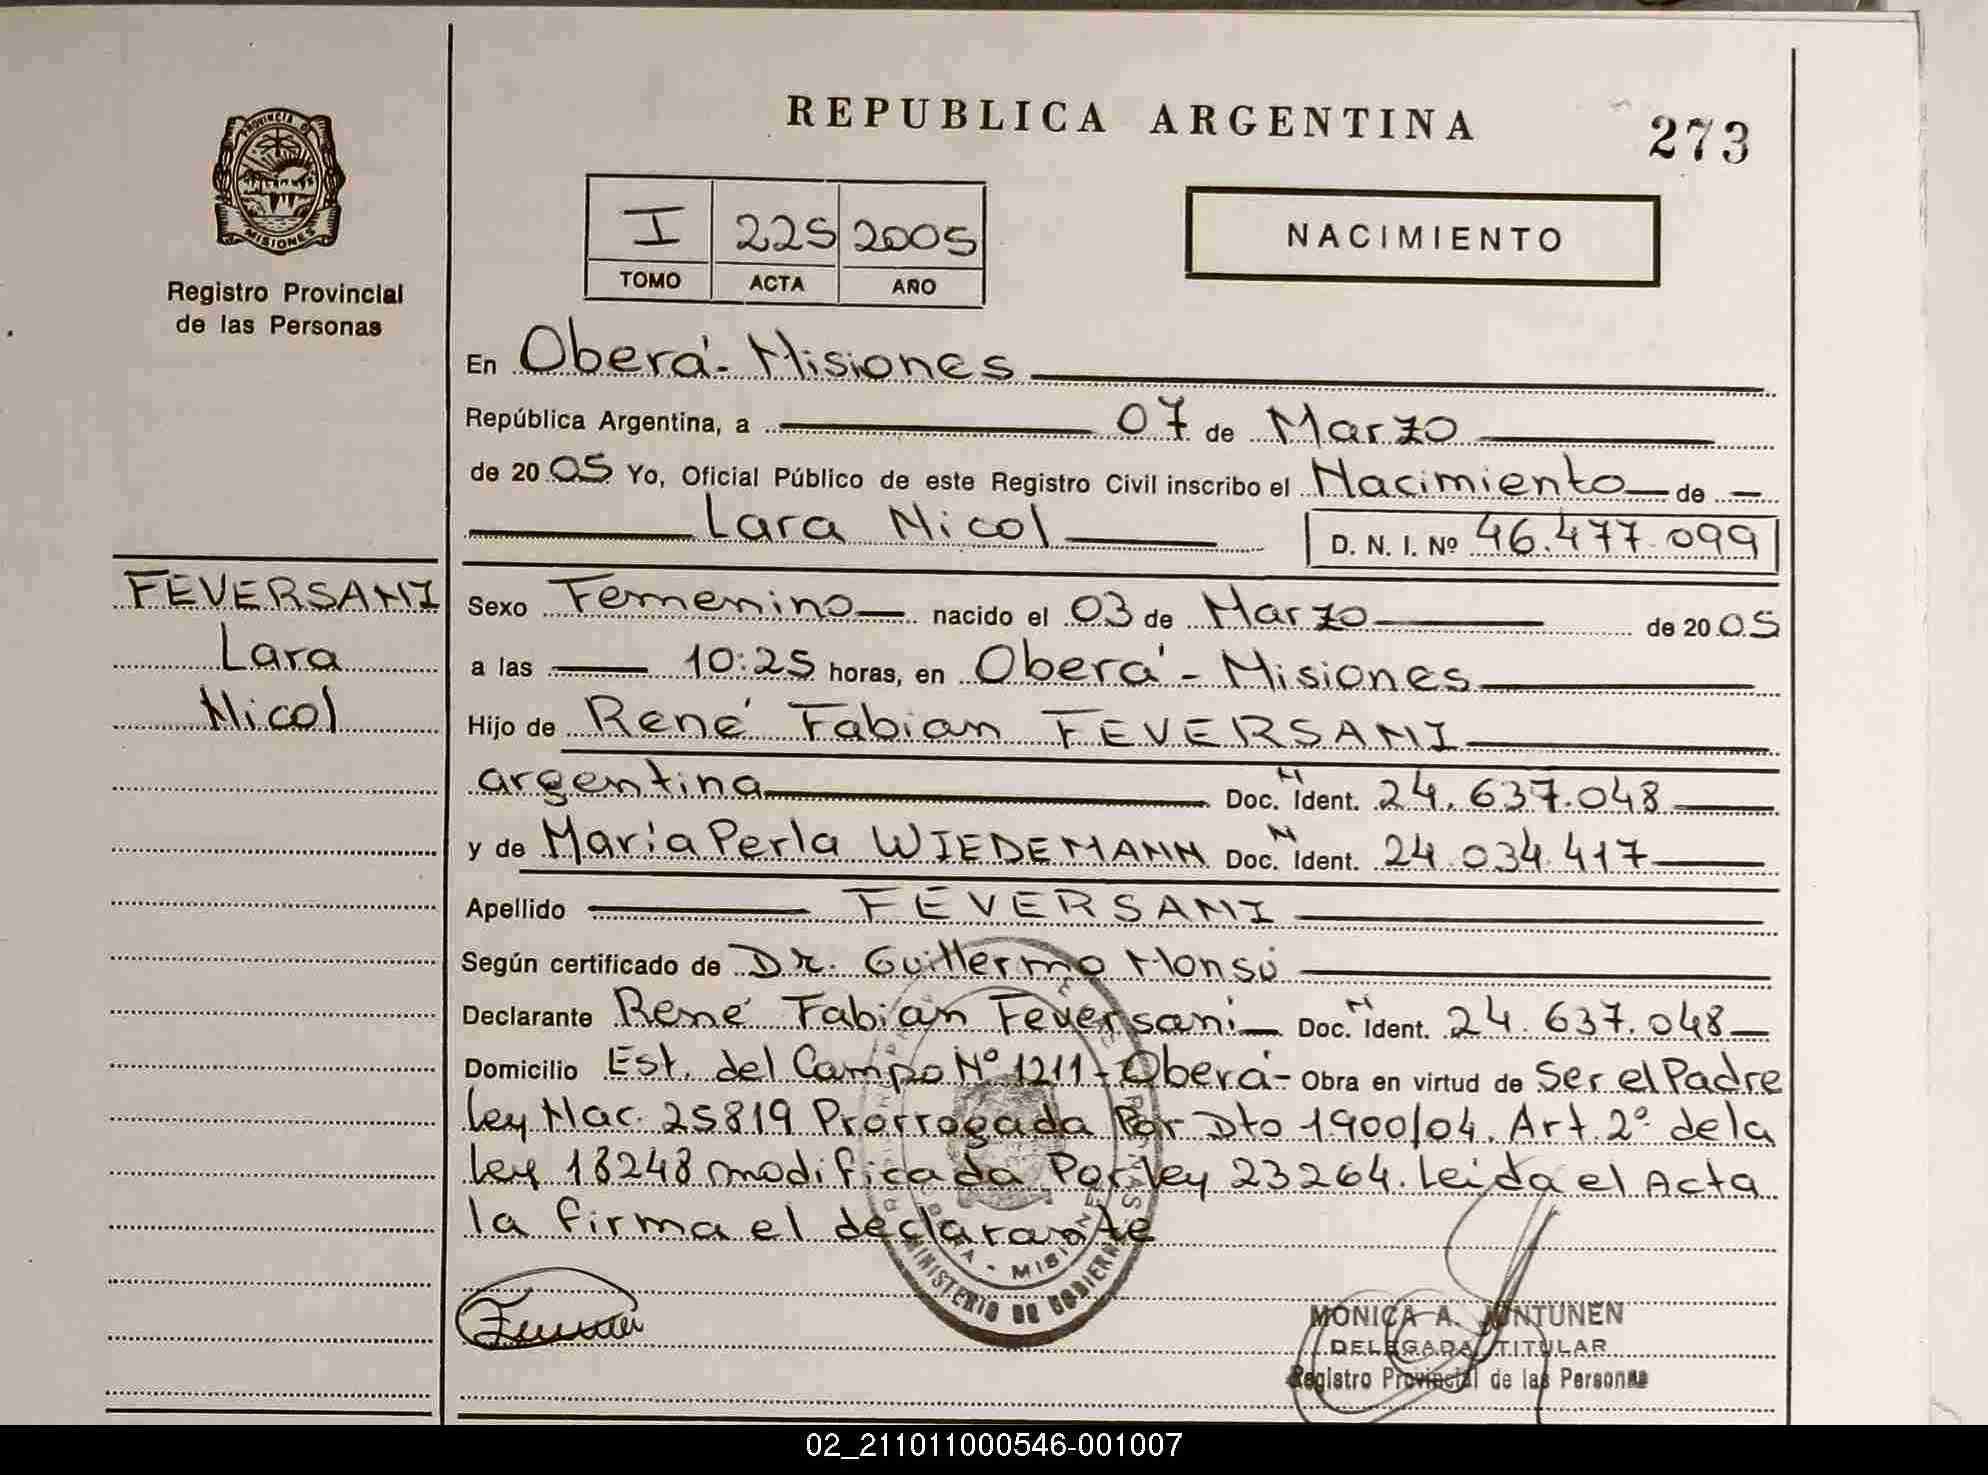 REPUBLICA ARGENTINA
273
PROVINCIA D
MISIONES
Registro Provincial
de las Personas
I 225 2005
TOMO ACTA AÑO
NACIMIENTO
En Oberá - Misiones
República Argentina, a 07 de Marzo
de 2005 Yo, Oficial Público de este Registro Civil inscribo el Nacimiento de
Lara Nicol D. N. I. Nº 46.477.099
FEVERSANI
Lara
Nicol
Sexo Femenino nacido el 03 de Marzo de 2005
a las 10:25 horas, en Oberá - Misiones
Hijo de René Fabian FEVERSANI
argentina Doc. N Ident. 24.637.048
y de María Perla WIEDEMANN Doc. N Ident. 24.034.417
Apellido FEVERSANI
Según certificado de Dr. Guillermo Monsú
Declarante René Fabián Feversani Doc. N Ident. 24.637.048
Domicilio Est. del Campo Nº 1211 - Oberá - Obra en virtud de Ser el Padre
Ley Nac. 25819 Prorrogada Por Dto 1900/04. Art. 2º de la
Ley 18248 modificada Por ley 23264. Leída el Acta
la firma el declarante
MINISTERIO DE GOBIERN
MONICA A. JUNTUNEN
DELEGADA TITULAR
Registro Provincial de las Personas
02_211011000546-001007